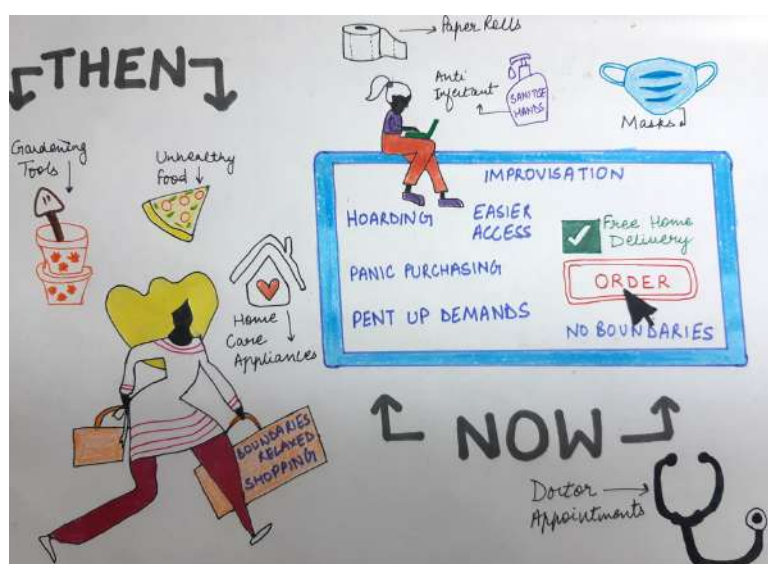 THEN
Gardening
Tools
Unhealthy
food
Home
Care
Appliances
BOUNDARIES
RELAXED
SHOPPING
Paper Rolls
Anti
Infectant
SANITISE
HANDS
Masks
IMPROVISATION
HOARDING
EASIER
ACCESS
Free Home
Delivery
PANIC PURCHASING
ORDER
PENT UP DEMANDS
NO BOUNDARIES
NOW
Doctor
Appointments